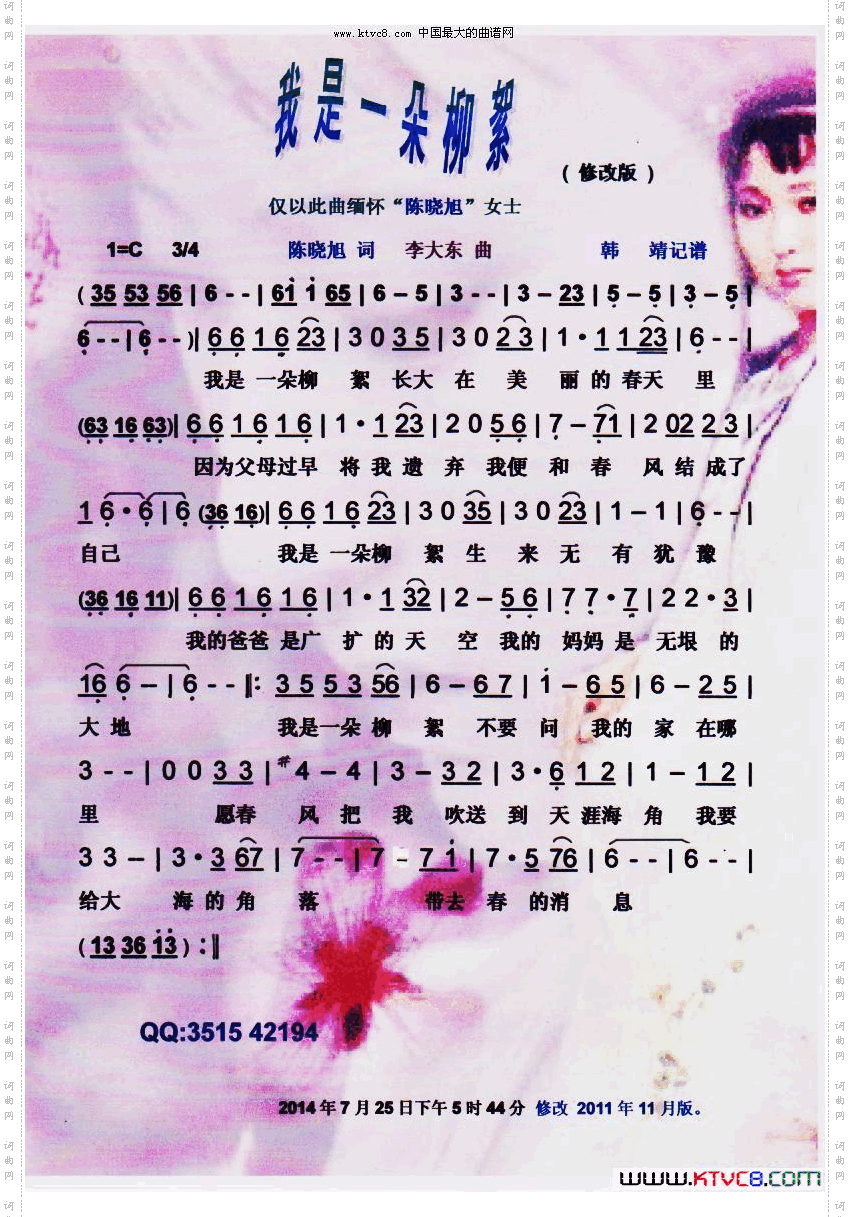 www.ktvc8.com 中国最大的曲谱网
我是一朵柳絮
( 修改版 )
仅以此曲缅怀“陈晓旭”女士
1=C 3/4 陈晓旭 词 李大东 曲 韩 靖记谱
( 35 53 56 | 6 - - | 61 1 65 | 6 - 5 | 3 - - | 3 - 23 | 5 - 5 | 3 - 5 |
6 - - | 6 - - )| 6 6 1 6 23 | 3 0 3 5 | 3 0 2 3 | 1 · 1 1 23 | 6 - - |
我是 一朵柳 絮 长大 在 美 丽 的 春天 里
(63 16 63)| 6 6 1 6 1 6 | 1 · 1 23 | 2 0 5 6 | 7 - 71 | 2 02 2 3 |
因为父母过早 将 我 遗 弃 我便 和 春 风 结 成了
1 6 · 6 | 6 (36 16)| 6 6 1 6 23 | 3 0 35 | 3 0 23 | 1 - 1 | 6 - - |
自己 我是 一朵柳 絮 生 来 无 有 犹 豫
(36 16 11)| 6 6 1 6 1 6 | 1 · 1 32 | 2 - 5 6 | 7 7 · 7 | 2 2 · 3 |
我的爸爸 是广 扩 的 天 空 我的 妈妈 是 无垠 的
16 6 - | 6 - - ‖: 3 5 5 3 56 | 6 - 6 7 | 1 - 6 5 | 6 - 2 5 |
大 地 我是一朵 柳 絮 不要 问 我的 家 在哪
3 - - | 0 0 3 3 | #4 - 4 | 3 - 3 2 | 3 · 6 1 2 | 1 - 1 2 |
里 愿春 风 把 我 吹送 到 天 涯海 角 我要
3 3 - | 3 · 3 67 | 7 - - | 7 - 7 1 | 7 · 5 76 | 6 - - | 6 - - |
给大 海 的 角 落 带去 春 的消 息
( 13 36 13 ) :‖
QQ:3515 42194
2014 年 7 月 25 日下午 5 时 44 分 修改 2011 年 11 月版。
www.KTVC8.com